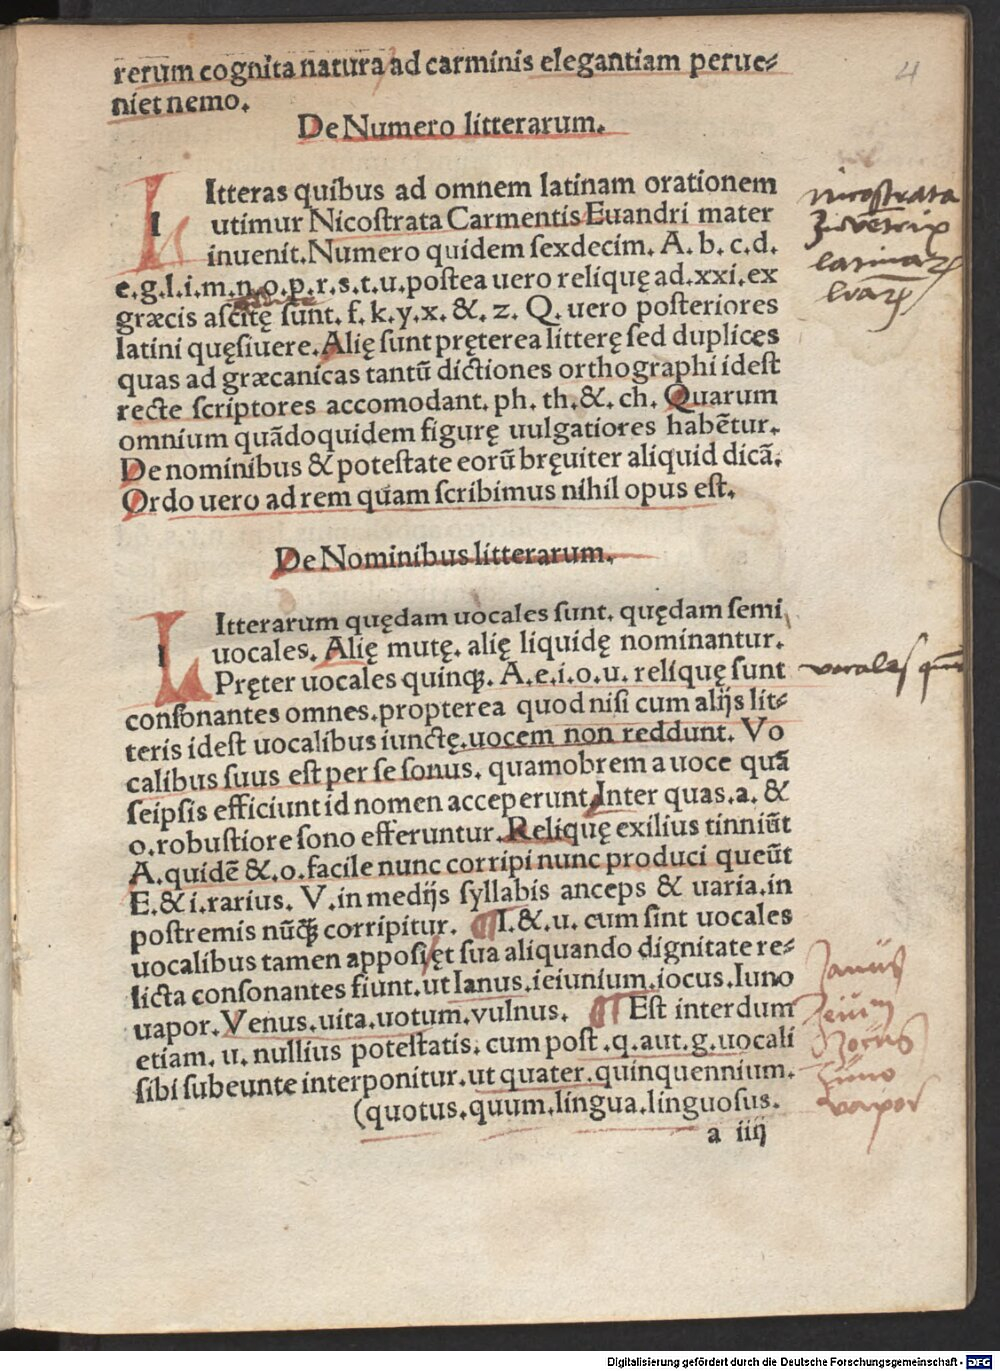 rerum cognita natura ad carminis elegantiam perue⸗
niet nemo.
4
De Numero litterarum.
LItteras quibus ad omnem latinam orationem
utimur Nicoſtrata Carmentis Euandri mater
inuenit. Numero quidem ſexdecim. A. b. c. d.
e. g. l. i. m. n. o. p. r. s. t. u. poſtea uero reliquę ad. xxi. ex
græcis aſcitę ſunt. f. k. y. x. &. z. Q. uero poſteriores
latini quęſiuere. Alię ſunt pręterea litterę ſed duplices
quas ad græcanicas tantū dictiones orthographi ideſt
recte ſcriptores accomodant. ph. th. &. ch. Quarum
omnium quādoquidem figurę uulgatiores habētur.
De nominibus & poteſtate eorū bręuiter aliquid dicā.
Ordo uero ad rem quam ſcribimus nihil opus eſt.
nicoſtrata
latinaꝝ
De Nominibus litterarum.
LItterarum quędam uocales ſunt. quędam ſemi
uocales. Alię mutę. alię liquidę nominantur.
Pręter uocales quinqꝫ. A. e. i. o. u. reliquę ſunt
conſonantes omnes. propterea quod niſi cum alijs lit⸗
teris ideſt uocalibus iunctę. uocem non reddunt. Vo
calibus ſuus eſt per ſe ſonus. quamobrem a uoce quā
ſeipſis efficiunt id nomen acceperunt. Inter quas. a. &
o. robuſtiore ſono efferuntur. Reliquę exilius tinniūt
A. quidē &. o. facile nunc corripi nunc produci queūt
E. & i. rarius. V. in medijs ſyllabis anceps & uaria. in
poſtremis nūqꝫ corripitur. ¶ I. &. u. cum ſint uocales
uocalibus tamen appoſięt ſua aliquando dignitate re⸗
licta conſonantes fiunt. ut Ianus. ieiunium. iocus. Iuno
uapor. Venus. uita. uotum. vulnus. ¶ Eſt interdum
etiam. u. nullius poteſtatis. cum poſt. q. aut. g. uocali
ſibi ſubeunte interponitur. ut quater. quinquennium.
(quotus. quum. lingua. linguoſus.
a iiij
vocales
Janus
Jocus
Juno
vapor
Digitalisierung gefördert durch die Deutsche Forschungsgemeinschaft - DFG